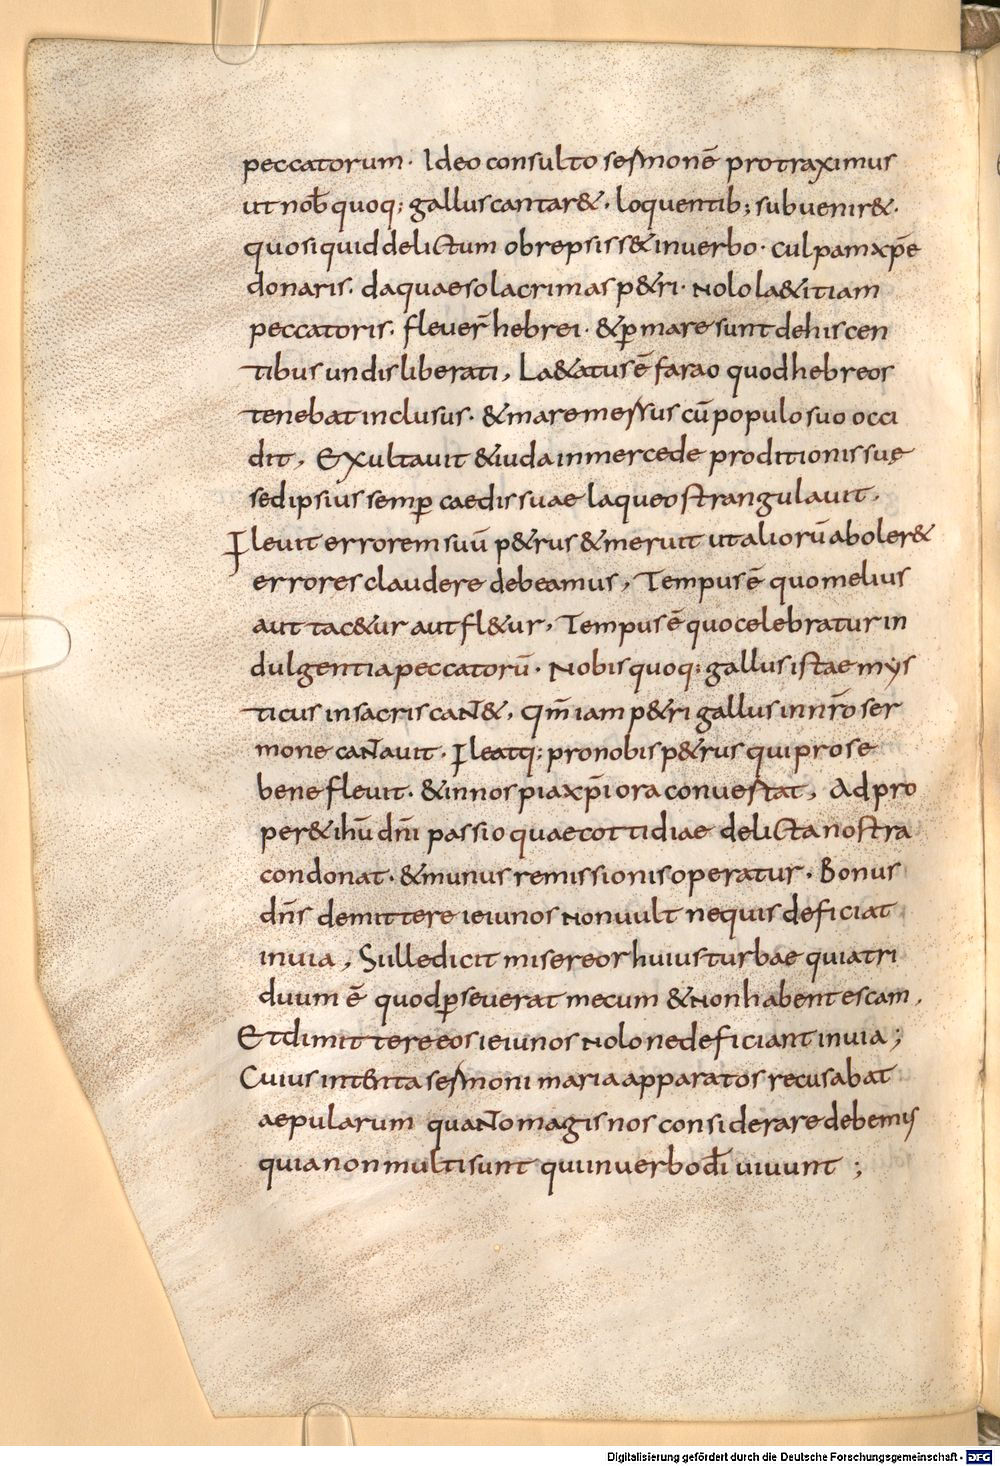 peccatorum · Ideo consulto sermonē protraximus
ut nob̄ quoq; gallus cantar& · loquentib; subuenir& ·
quo siquid delictum obrepsiss& in uerbo · culpam xp̄e
donaris · da quaeso lacrimas p&ri · Nolo la&itiam
peccatoris · fleuer̄ hebrei · & p̄ mare sunt dehiscen
tibus undis liberati, La&atus ē farao quod hebreos
tenebat inclusus · & mare messus cū populo suo occi
dit, Exultauit & iuda in mercede proditionis suę
sed ipsius semp̄ caedis suae laqueo strangulauit,
Fleuit errorem suū p&rus & meruit ut aliorū aboler&
errores claudere debeamus, Tempus ē quo melius
aut tac&ur aut fl&ur, Tempus ē quo celebratur in
dulgentia peccatorū · Nobis quoq; gallus istae mys
ticus in sacris caN&, Qm̄ iam p&ri gallus in nr̄o ser
mone caNauit · Fleatq; pro nobis p&rus qui pro se
bene fleuit · & in nos pia xp̄i ora conuertat, Ad pro
per& ihū dn̄i passio quae cottidiae delicta nostra
condonat · & munus remissionis operatur · Bonus
dn̄s demittere ieiunos Non uult ne quis deficiat
in uia, Sulle dicit misereor huius turbae quia tri
duum ē quod p̄seuerat mecum & Non habent escam,
Et dimittere eos ieiunos Nolo ne deficiant in uia ;
Cuius intenta sermoni maria apparatos recusabat
aepularum quaNto magis nos considerare debemus
quia non multi sunt qui in uerbo dī uiuunt ;
Digitalisierung gefördert durch die Deutsche Forschungsgemeinschaft - DFG